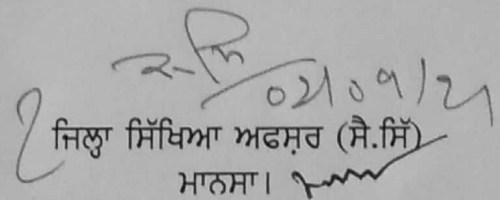 02/09/21
ਜਿਲ੍ਹਾ ਸਿੱਖਿਆ ਅਫਸ਼ਰ (ਸੈ.ਸਿੱ)
ਮਾਨਸਾ।